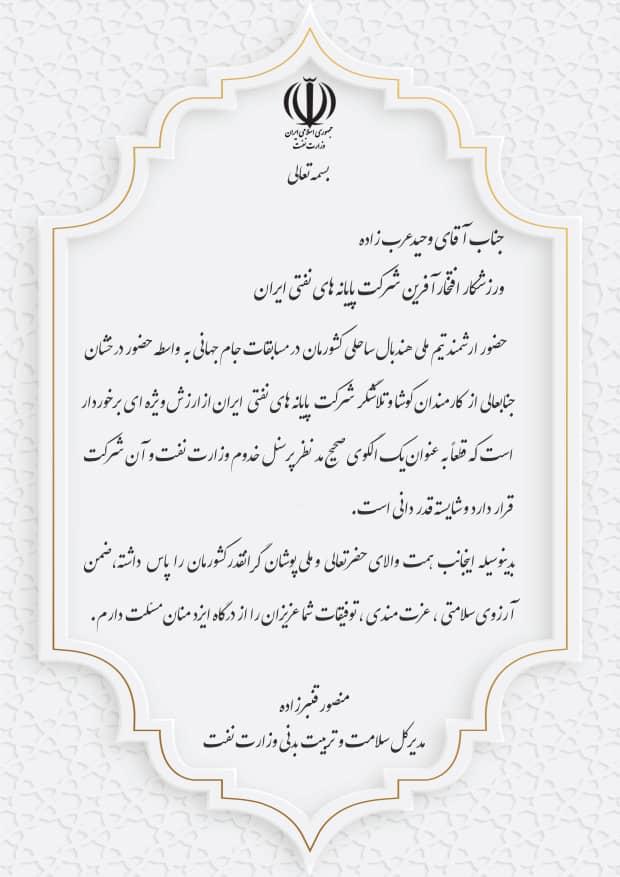 جمهوری اسلامی ایران
وزارت نفت
بسمه تعالی
جناب آقای وحید عرب زاده
ورزشکار افتخار آفرین شرکت پایانه های نفتی ایران
حضور ارشمند تیم ملی هندبال ساحلی کشورمان در مسابقات جام جهانی به واسطه حضور درخشان
جنابعالی از کارمندان کوشا و تلاشگر شرکت پایانه های نفتی ایران از ارزش ویژه ای برخوردار
است که قطعاً به عنوان یک الگوی صحیح مد نظر پرسنل خدوم وزارت نفت و آن شرکت
قرار دارد و شایسته قدر دانی است.
بدینوسیله اینجانب همت والای حضرتعالی و ملی پوشان گرانقدر کشورمان را پاس داشته، ضمن
آرزوی سلامتی ، عزت مندی ، توفیقات شما عزیزان را از درگاه ایزد منان مسئلت دارم.
منصور قنبرزاده
مدیرکل سلامت و تربیت بدنی وزارت نفت